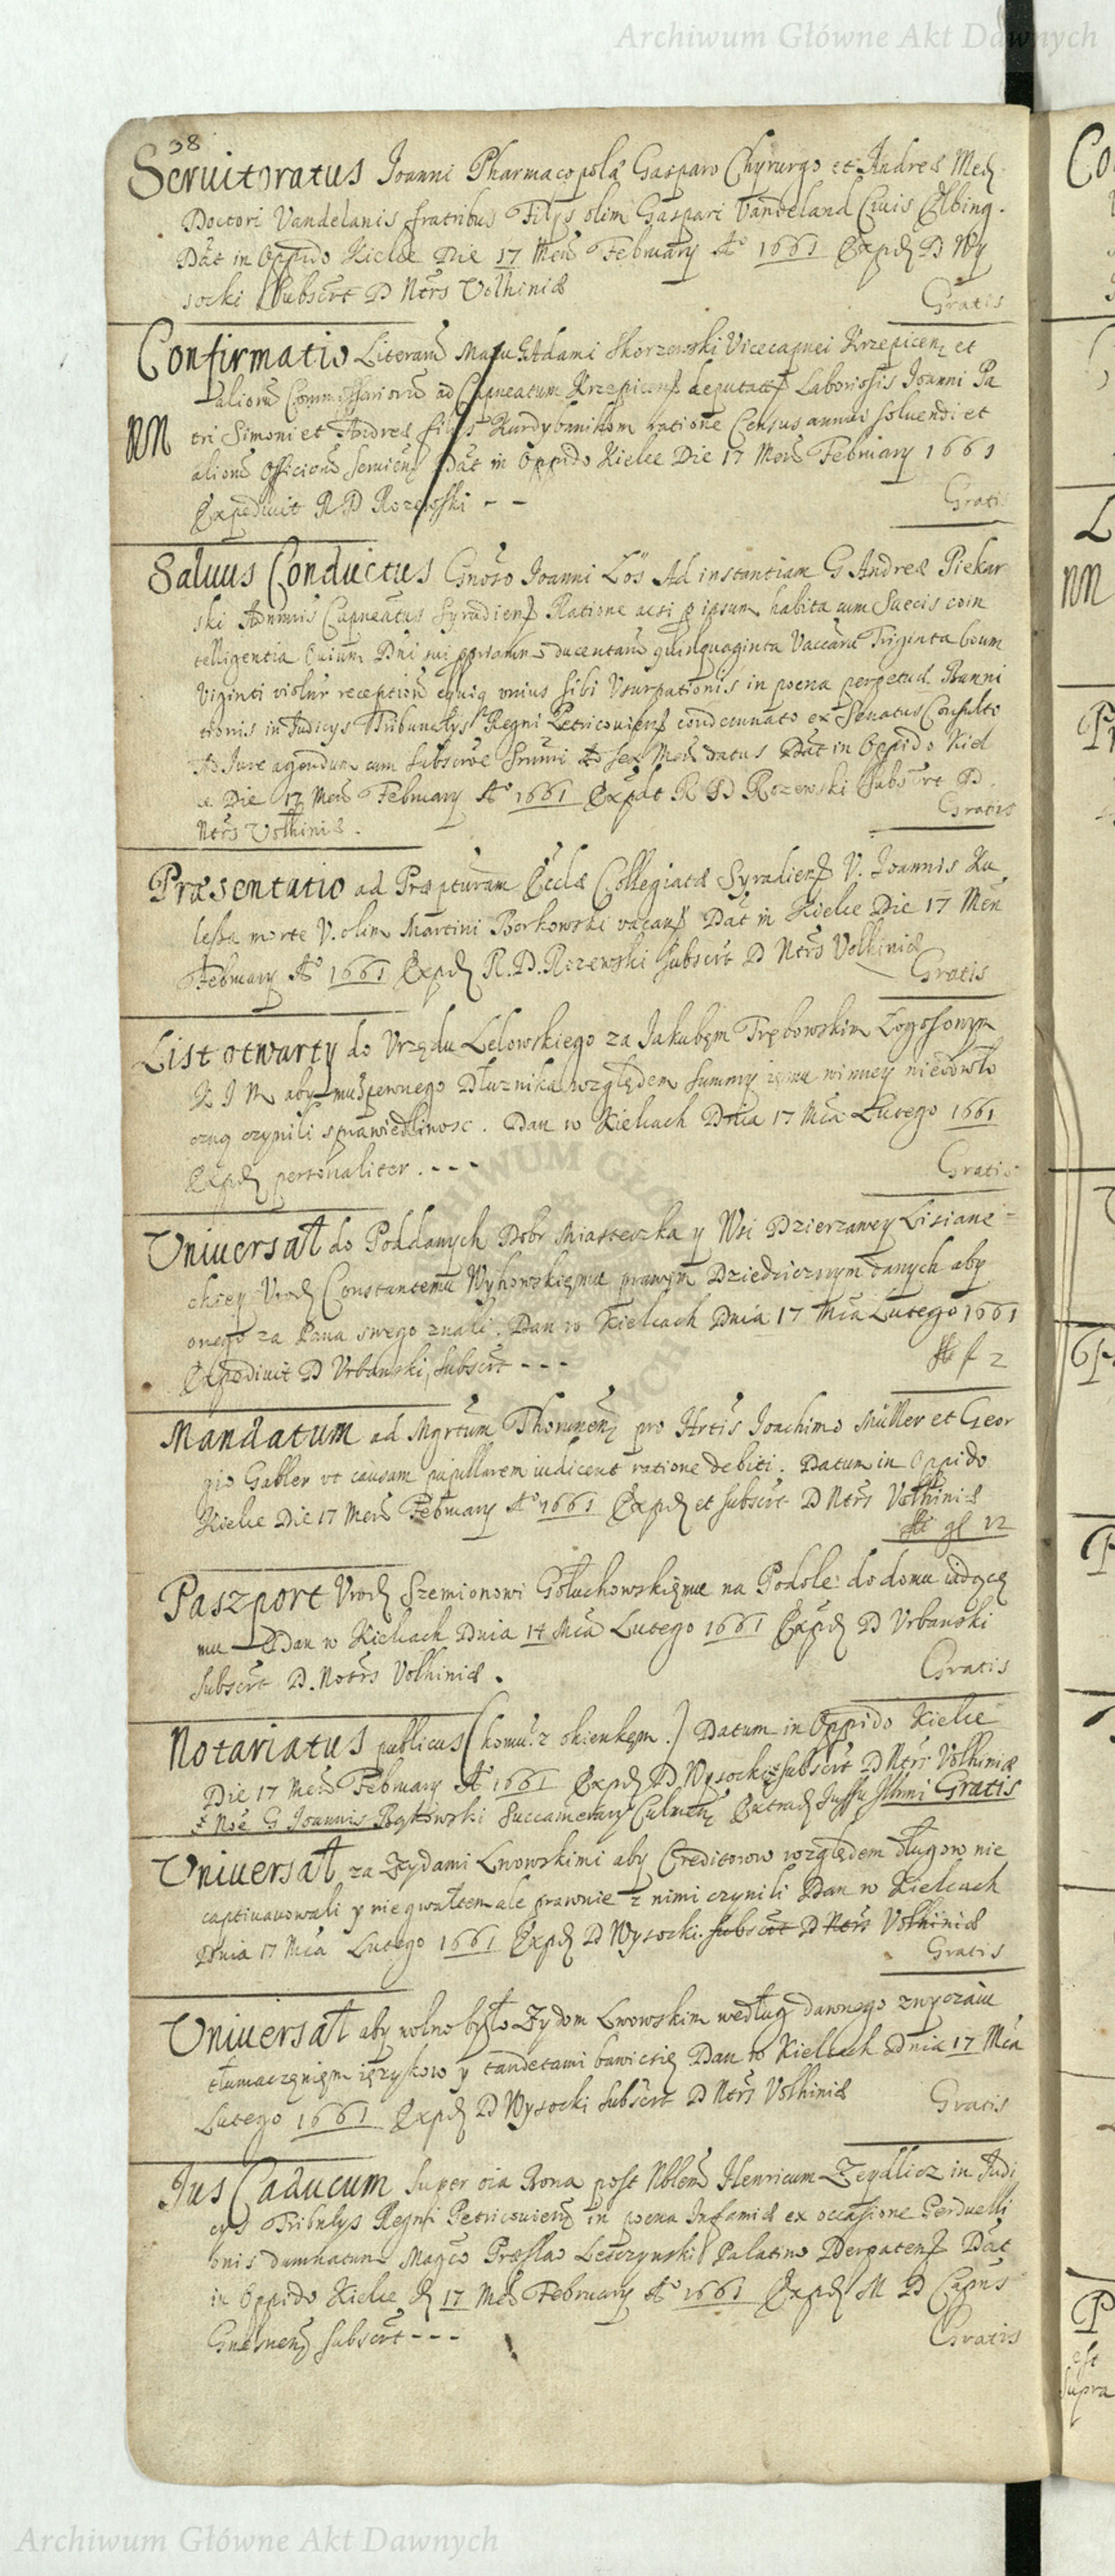 Archiwum Główne Akt Dawnych
38
Servitoratus Joanni Pharmacopolæ Gasparo Chyrurgo et Andreæ Med.
Doctori Vandelanis fratribus Filys olim Gaspari Vandeland Civis Elbing.
Dat in Oppido Kielce Die 17 Mens February Aº 1661 Expd D Wy
socki Subscrt D Ntrs Volhiniæ
Gratis
Confirmatio Literarum Adami Skorzewski Vicecapnei Krzepicens et
aliorum Commissariorum ad Capneatum Krzepicens deputat Laboriosis Joanni Pa
NN
tri Simoni et Andreæ filys Kurdybanikom ratione Census annui solvendi et
aliorum Officiorum Dat in Oppido Kielce Die 17 Mens February 1661
Expedivit R D Rozewski - -
Gratis
Salvus Conductus Gnoso Joanni Lös Ad instantiam G Andreæ Piekar
ski Capneatus Syradiens Ratione acsi p ipsum habita cum Suecis coin
telligentia Ovium Dni sui ducentarum quinquaginta Vaccarum Triginta boum
Viginti violnr reception equiq unius sibi Usurpationis in poena perpetuæ Banni
tionis in Judicys Tribunalys Regni Petricoviens condemnato ex Senatus Consulto
Ad Jure agendum cum Subscrve Srmi Ad sex Mens datus Dat in Oppido Kiel
ce Die 17 Mens February Aº 1661 Expdt R D Rozewski Subscrt D
Ntrs Volhiniæ.
Gratis
Præsentatio ad Præpturam Ecclæ Collegiatæ Syradiens V. Joannis Ku
lessa morte V. olim Martini Borkowski vacans Dat in Kielce Die 17 Men
February Aº 1661 Expd R. D. Rozewski Subscrt D Ntrs Volhiniæ
Gratis
List otwarty do Urzędu Lelowskiego za Jakubęm Trębowskim Łogosonym
K J M aby mu z pewnego Dłuznika względem Summy iemu winney nieodwło
czną czynili sprawiedliwosc. Dan w Kielcach Dnia 17 Mca Lutego 1661
Expd personaliter. - - -
Gratis
Universał do Poddanych Dobr Miasteczka y Wsi Dzierzawey Lisianc=
skiey Urod Constantemu Wyhowskięmu prawęm Dziedzicznym danych aby
onego za Pana swego znali. Dan w Kielcach Dnia 17 Mca Lutego 1661
Expedivit D Urbanski, Subscrt - - -
f 2
Mandatum ad Mgrtum Thorunens pro Hrtis Joachimo Müller et Geor
gio Gabler vt causam pupillarem iudicent ratione debiti. Datum in Oppido
Kielce Die 17 Mens February Aº 1661 Expd et Subscrt D Ntrs Volhiniæ
gl 12
Paszport Urod Szemionowi Gołuchowskięmu na Podole do domu iadącę
mu Dan w Kielcach Dnia 17 Mca Lutego 1661 Expd D Urbanski
Subscrt D. Notrs Volhiniæ.
Gratis
Notariatus publicus (komu? z okienkęm.) Datum in Oppido Kielce
Die 17 Mens February Aº 1661 Expd D Wysocki Subscrt D Ntrs Volhiniæ
Noe G Joannis Bąkowski Succamerary Culmens Extrad Jussu Illmi Gratis
Universał za Zydami Lwowskimi aby Creditorow względem długow nie
captivavowali y nie gwałtem ale prawnie z nimi czynili Dan w Kielcach
Dnia 17 Mca Lutego 1661 Expd D Wysocki. Subscrt D Ntrs Volhiniæ
Gratis
Universał aby wolno było Zydom Lwowskim według dawnego zwyczaiu
tłumaczęnięm ięzykow y tandetami bawic się Dan w Kielcach Dnia 17 Mca
Lutego 1661 Expd D Wysocki Subscrt D Ntrs Volhiniæ
Gratis
Jus Caducum super oia Bona post Nblem Henricum Zeydlicz in Judi
cys Tribnlys Regni Petricoviens in poena Infamiæ ex occasione Perduelli
onis damnatum Magco Præslao Leszczynski Palatino Derpatens Dat
in Oppido Kielce d 17 Mens February Aº 1661 Expd M D Capns
Gnesnens Subscrt - - -
Gratis
Archiwum Główne Akt Dawnych